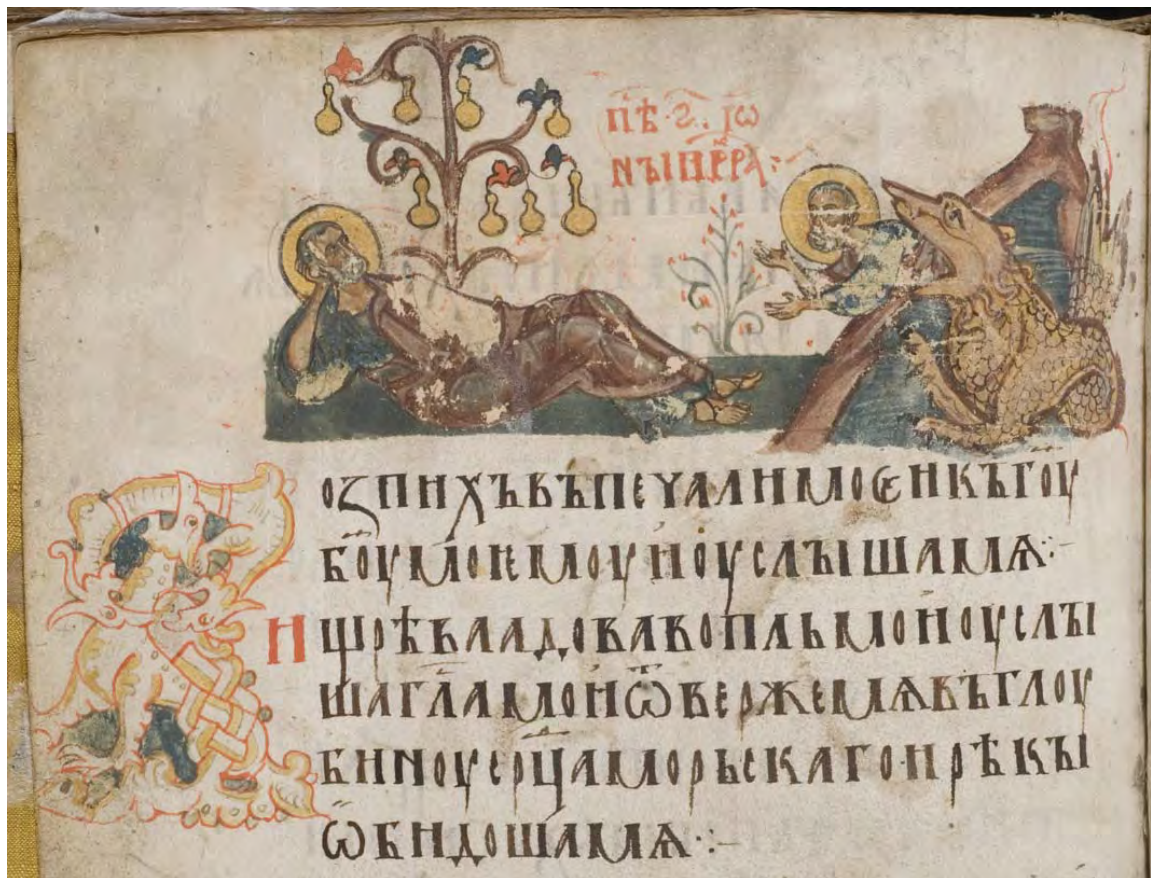 пѣ·ѕ҃·іѡ
нъі прⷪ҇рка:·
оꙁпихъвъпечалимоѥикъгоу
боумоѥмоуиоуслъішамѧ:·
ищрѣваадовавопльмоиоуслъі
шагл҃амоиѿвержемѧвъглоу
биноусрⷣцаморьскагоирѣкъі
ѡбидошамѧ:·